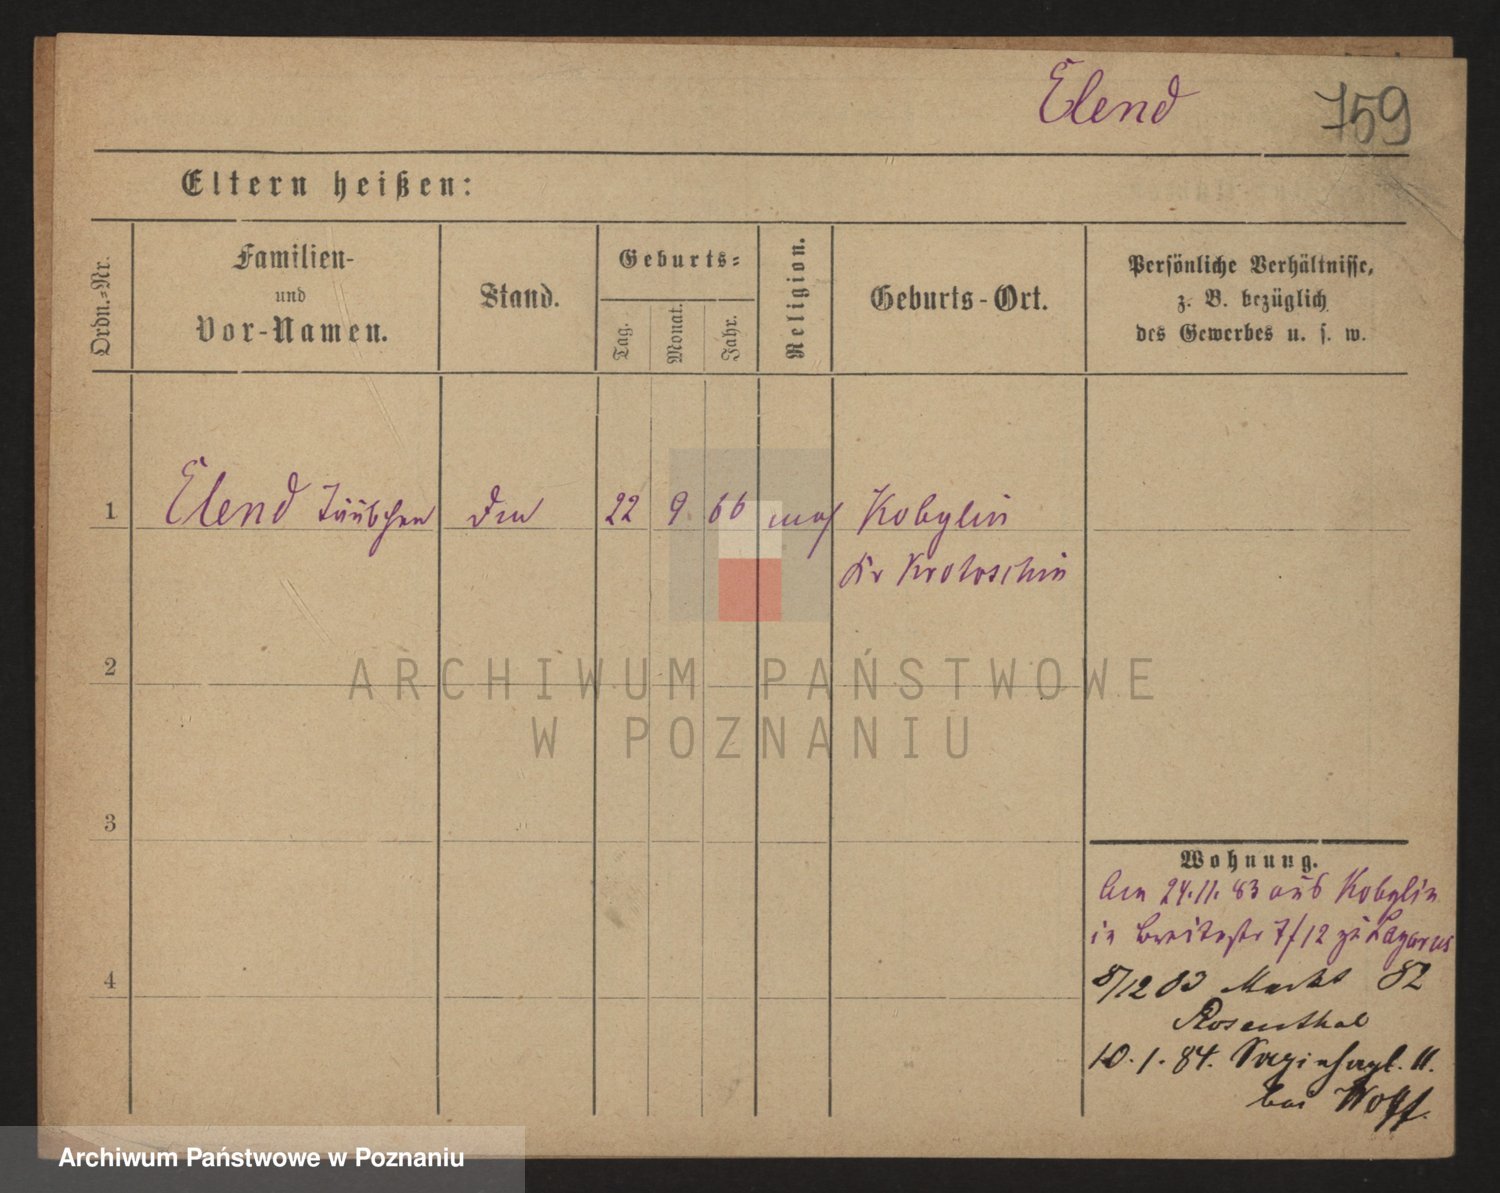 Elend 759
Eltern heißen:
Ordn.=Nr.
Familien-
und
Vor-Namen.
Stand.
Geburts=
Tag.
Monat.
Jahr.
Religion.
Geburts-Ort.
Persönliche Verhältnisse,
z. B. bezüglich
des Gewerbes u. s. w.
1 Elend Täubchen 22 9 66 mos Kobylin
Kr Krotoschin
2
3
4
Wohnung.
Am 24.11.83 aus Kobylin
in Breitestr 7/12 zu Lazarus
8/12 83 Markt 82
Rosenthal
10.1.84. 11.
bei Wolff.
ARCHIWUM PAŃSTWOWE
W POZNANIU
Archiwum Państwowe w Poznaniu